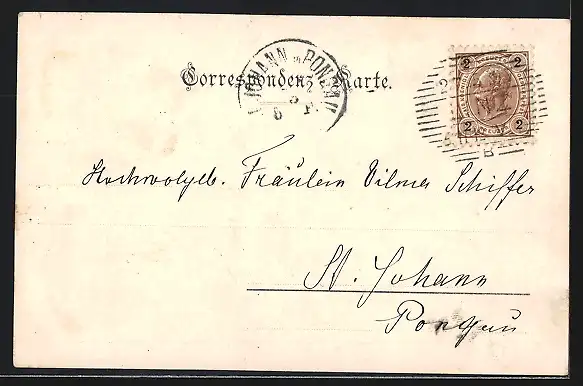 Correspondenz-Karte.
JOHANN in PONGAU
2 2
2 2
B
Hochwolgeb. Fräulein Vilma Schiffer
St. Johann
Pongau